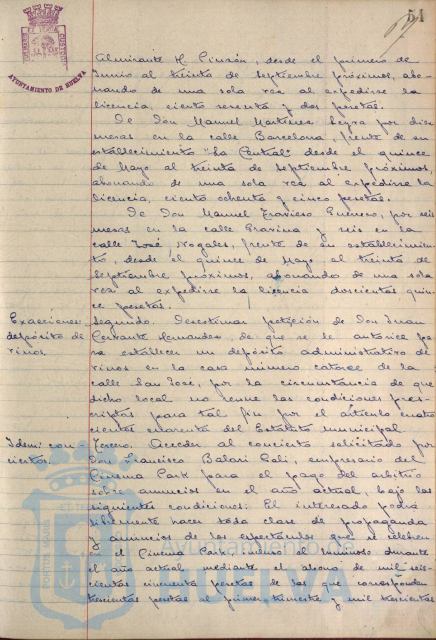 51
AYUNTAMIENTO DE HUELVA
Almirante H. Pinzón, desde el primero de
Junio al treinta de septiembre próximos, abo-
nando de una sola vez al expedirse la
licencia, ciento sesenta y dos pesetas.
De Don Manuel Martínez Neyra por diez
mesas en la calle Barcelona, frente de su
establecimiento "La Central" desde el quince
de Mayo al treinta de septiembre próximos,
abonando de una sola vez al expedirse la
licencia, ciento ochenta y cinco pesetas.
De Don Manuel Travieso Guerrero, por seis
mesas en la calle Gravina y seis en la
calle José Nogales, frente de su establecimien-
to, desde el quince de Mayo al treinta de
septiembre próximos, abonando de una sola
vez al expedirse la licencia doscientas quin-
ce pesetas.
Exacciones
depósito de
vinos.
Segundo. Desestimar petición de Don Juan
Cervante Hernandez, de que se le autorice pa-
ra establecer un depósito administrativo de
vinos en la casa número catorce de la
calle San José, por la circunstancia de que
dicho local no reune las condiciones pres-
criptas para tal fin por el artículo cuatro
cientos cuarenta del Estatuto municipal
Idem con-
ciertos.
Tercero. Acceder al concierto solicitado por
Don Francisco Balari Galí, empresario del
Cinema Park para el pago del arbitrio
sobre anuncios en el año actual, bajo las
siguientes condiciones: El interesado podrá
libremente hacer toda clase de propaganda
y anuncios de los espectáculos que se celebren
en el Cinema Park incluso el luminoso durante
el año actual mediante el abono de mil seis-
cientas cincuenta pesetas de las que corresponden
trescientas pesetas al primer trimestre y mil trescientas
Ayuntamiento de
HUELVA